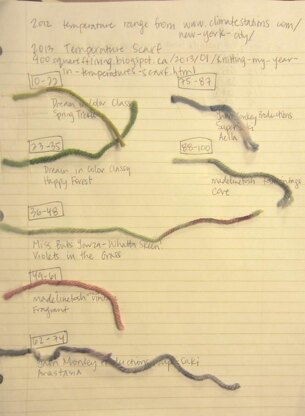 2012 temperature range from www.climatestations.com/
new-york-city/
2013 Temperature Scarf
400squareftliving.blogspot.ca/2013/01/knitting-my-year-
in-temperatures-scarf.html
10-22
Dream in Color Classy
Spring
23-35
Dream in Color Classy
Happy Forest
36-48
Miss Babs Yowza-Whatta Skein
Violets in the Grass
49-61
madelinetosh vintage
Fragrant
62-74
Monkey
Anastasia
75-87
Monkey Productions
88-100
madelinetosh
Cove